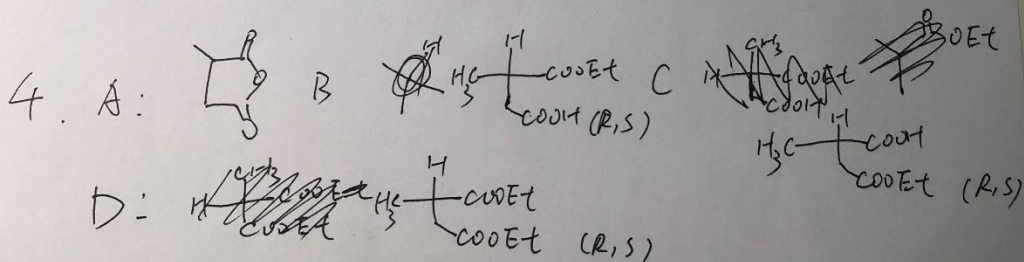 4. A: O O O B H H₃C COOEt COOH (R,S) C OEt
H H₃C COOH COOEt (R,S)
D: H H₃C COOEt COOEt (R,S)